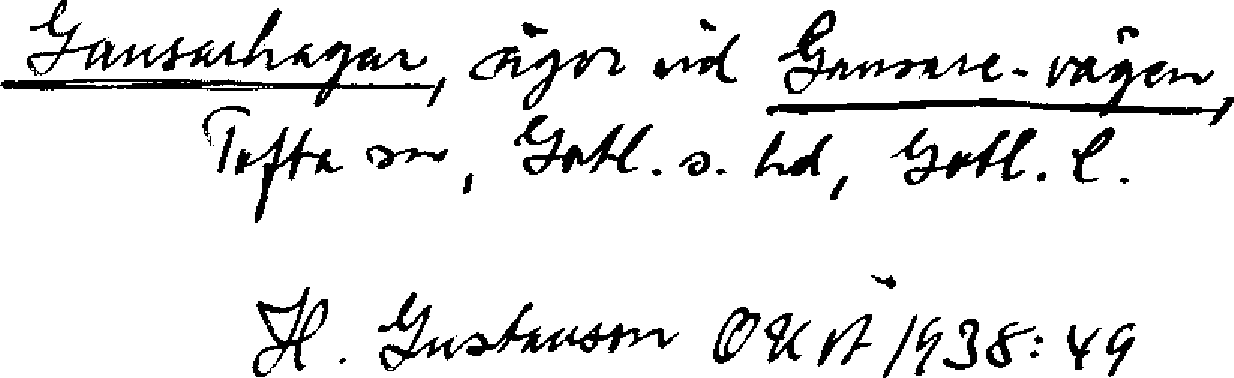 Gansarhagar, ägor vid Gansare-vägen,
Tofta sn, Gotl. s. hd, Gotl. l.
H. Gustavson OKÅ 1938: 49